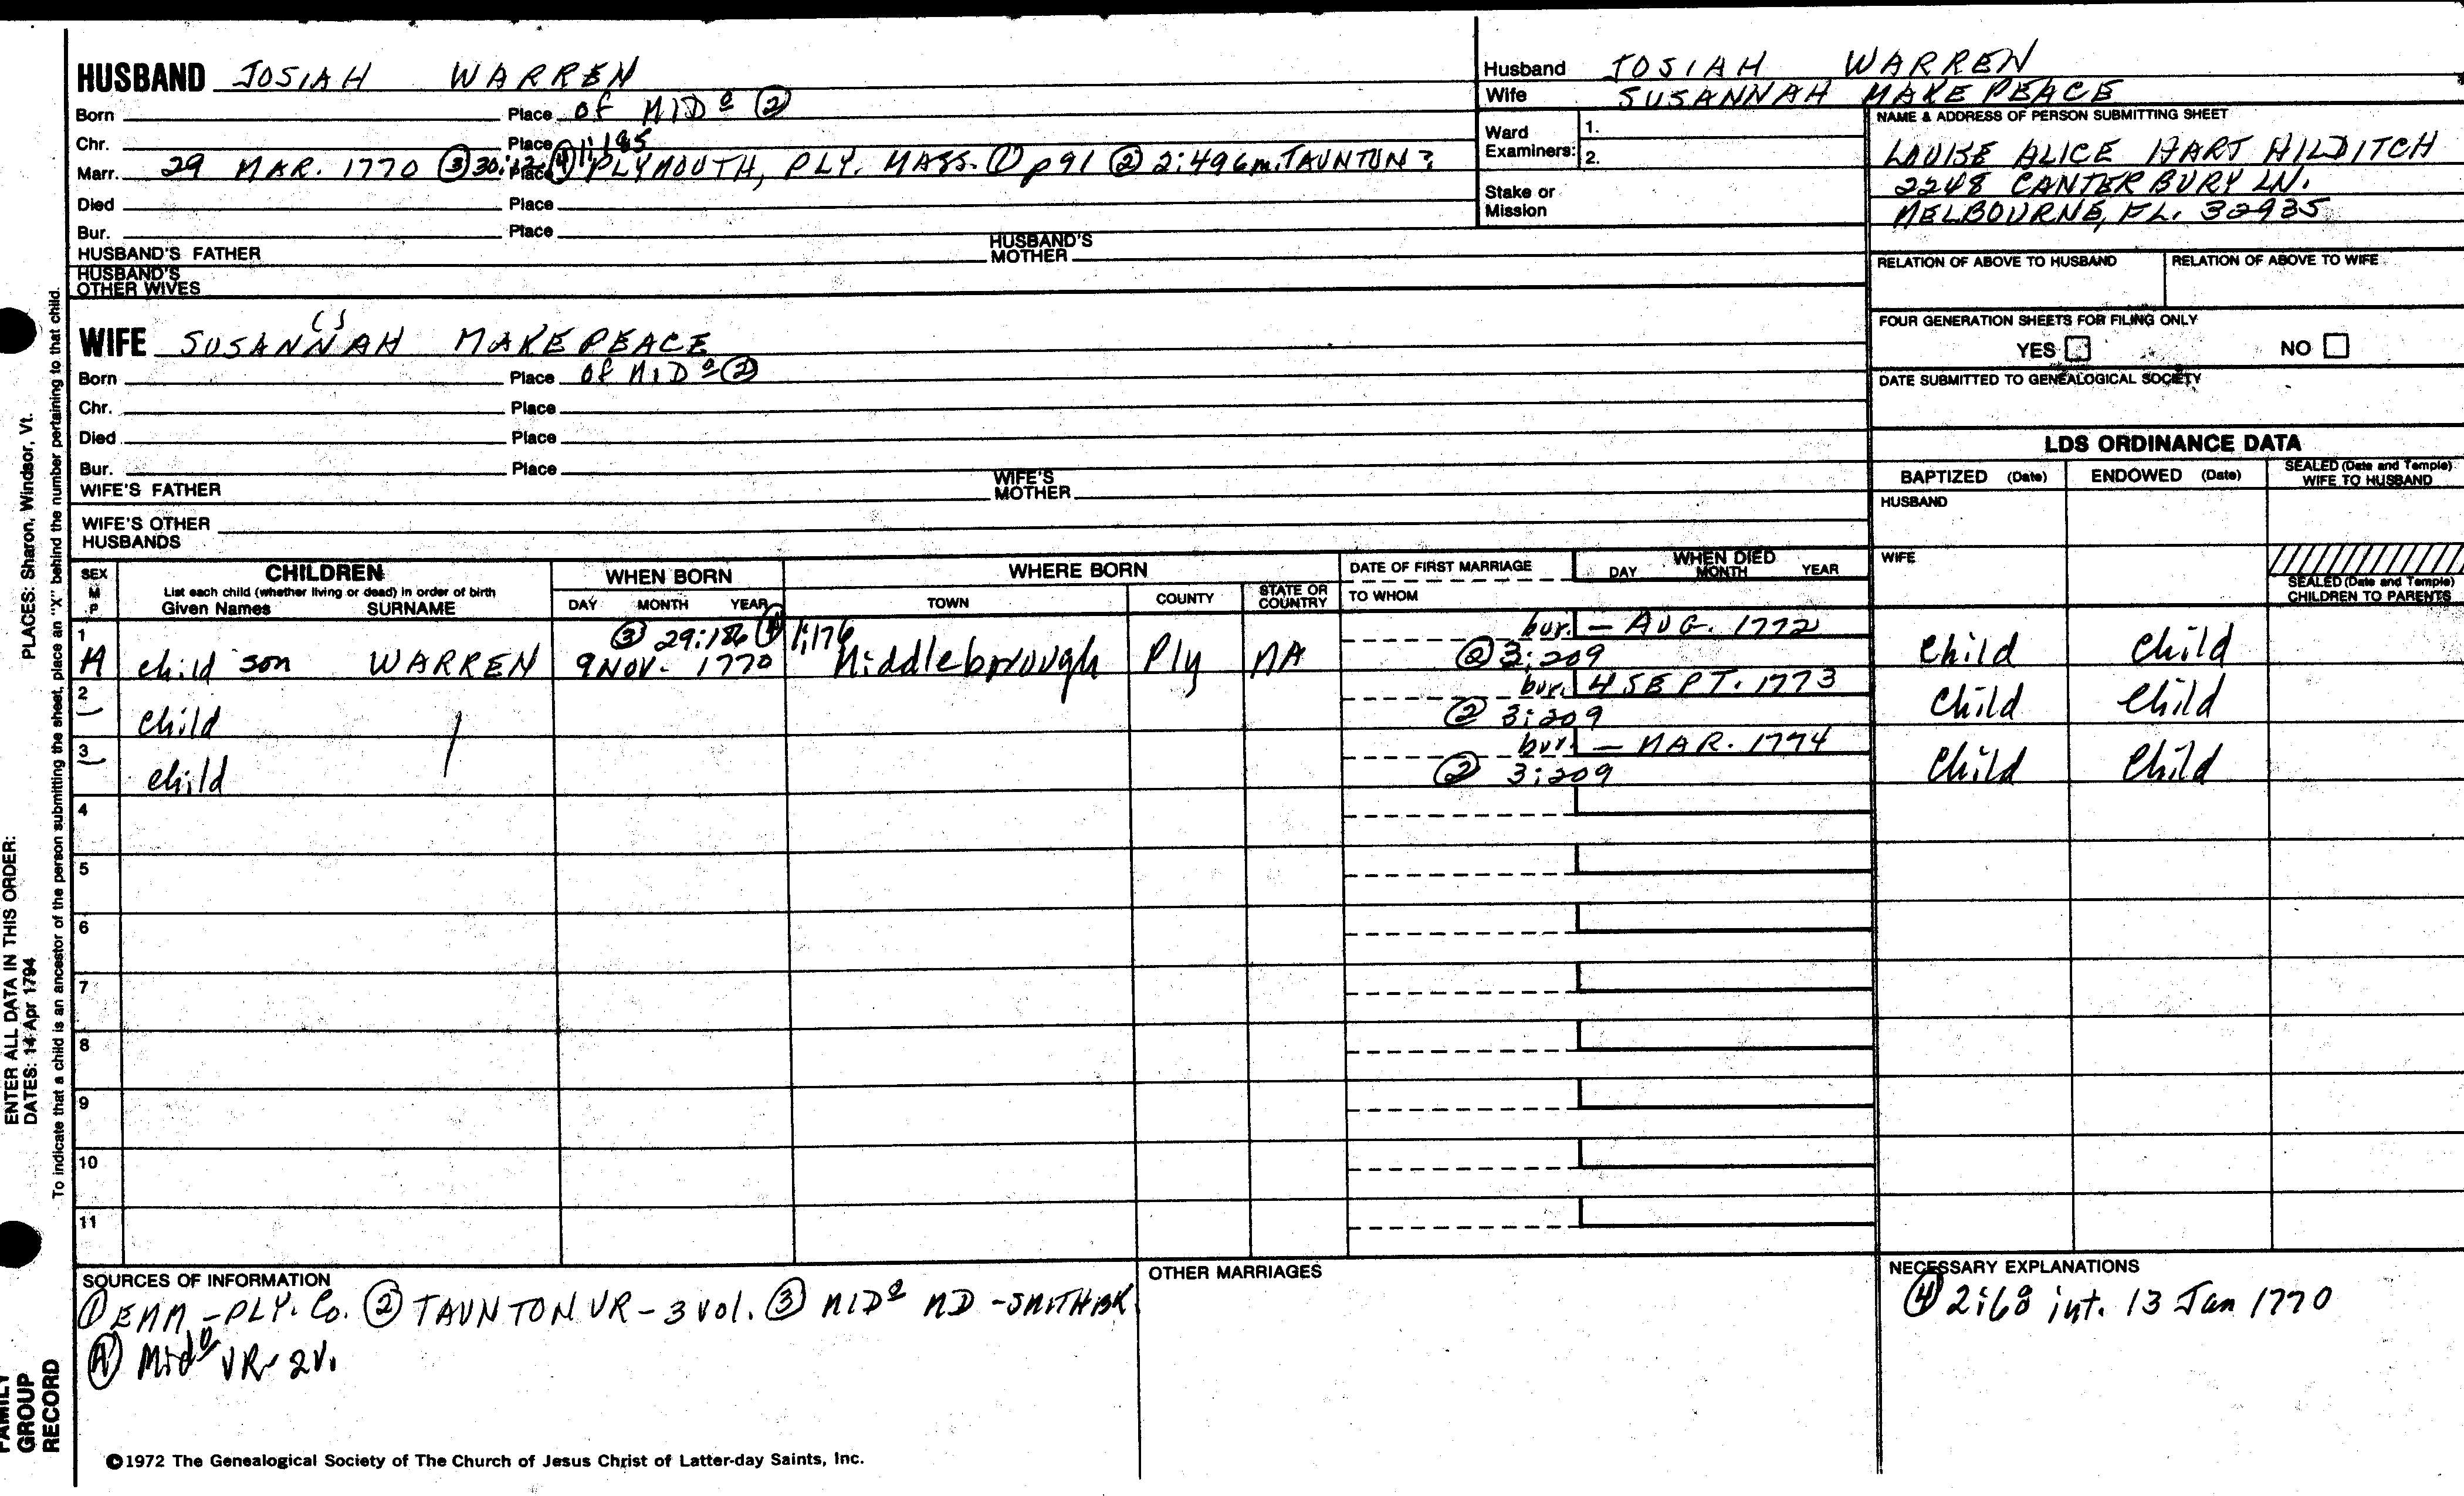 HUSBAND JOSIAH WARREN
Born Place of MIDº ②
Chr. Place 1:185
Marr. 29 MAR. 1770 ③ 30:12 ④ Place PLYMOUTH, PLY. MASS. ① p91 ② 2:496 m. TAUNTON?
Died Place
Bur. Place
HUSBAND'S FATHER HUSBAND'S MOTHER
HUSBAND'S OTHER WIVES
Husband JOSIAH WARREN
Wife SUSANNAH MAKEPEACE
Ward Examiners: 1.
2.
Stake or Mission
NAME & ADDRESS OF PERSON SUBMITTING SHEET
LOUISE ALICE HART HILDITCH
2248 CANTERBURY LN.
MELBOURNE, FL. 32935
RELATION OF ABOVE TO HUSBAND RELATION OF ABOVE TO WIFE
FOUR GENERATION SHEETS FOR FILING ONLY
YES NO
DATE SUBMITTED TO GENEALOGICAL SOCIETY
WIFE SUSANNAH MAKEPEACE
Born Place of MIDº ②
Chr. Place
Died Place
Bur. Place
WIFE'S FATHER WIFE'S MOTHER
WIFE'S OTHER HUSBANDS
LDS ORDINANCE DATA
BAPTIZED (Date) ENDOWED (Date) SEALED (Date and Temple) WIFE TO HUSBAND
HUSBAND
WIFE
SEALED (Date and Temple) CHILDREN TO PARENTS
SEX M F
CHILDREN
List each child (whether living or dead) in order of birth
Given Names SURNAME
WHEN BORN
DAY MONTH YEAR
WHERE BORN
TOWN COUNTY STATE OR COUNTRY
DATE OF FIRST MARRIAGE
TO WHOM
WHEN DIED
DAY MONTH YEAR
1 ③ 29:186 ④ 1:176 bur. – AUG. 1772
M child son WARREN 9 NOV. 1770 Middleborough Ply MA ② 3:209 Child Child
2 bur. 4 SEPT. 1773
child ② 3:209 Child Child
3 bur. – MAR. 1774
child ② 3:209 Child Child
4
5
6
7
8
9
10
11
SOURCES OF INFORMATION
① EMM – PLY. Co. ② TAUNTON VR – 3 vol. ③ MIDº MD – SMITH BK
④ Midº VR – 2V.
OTHER MARRIAGES
NECESSARY EXPLANATIONS
④ 2:68 int. 13 Jan 1770
©1972 The Genealogical Society of The Church of Jesus Christ of Latter-day Saints, Inc.
FAMILY GROUP RECORD
ENTER ALL DATA IN THIS ORDER:
DATES: 14 Apr 1794
PLACES: Sharon, Windsor, Vt.
To indicate that a child is an ancestor of the person submitting the sheet, place an "X" behind the number pertaining to that child.